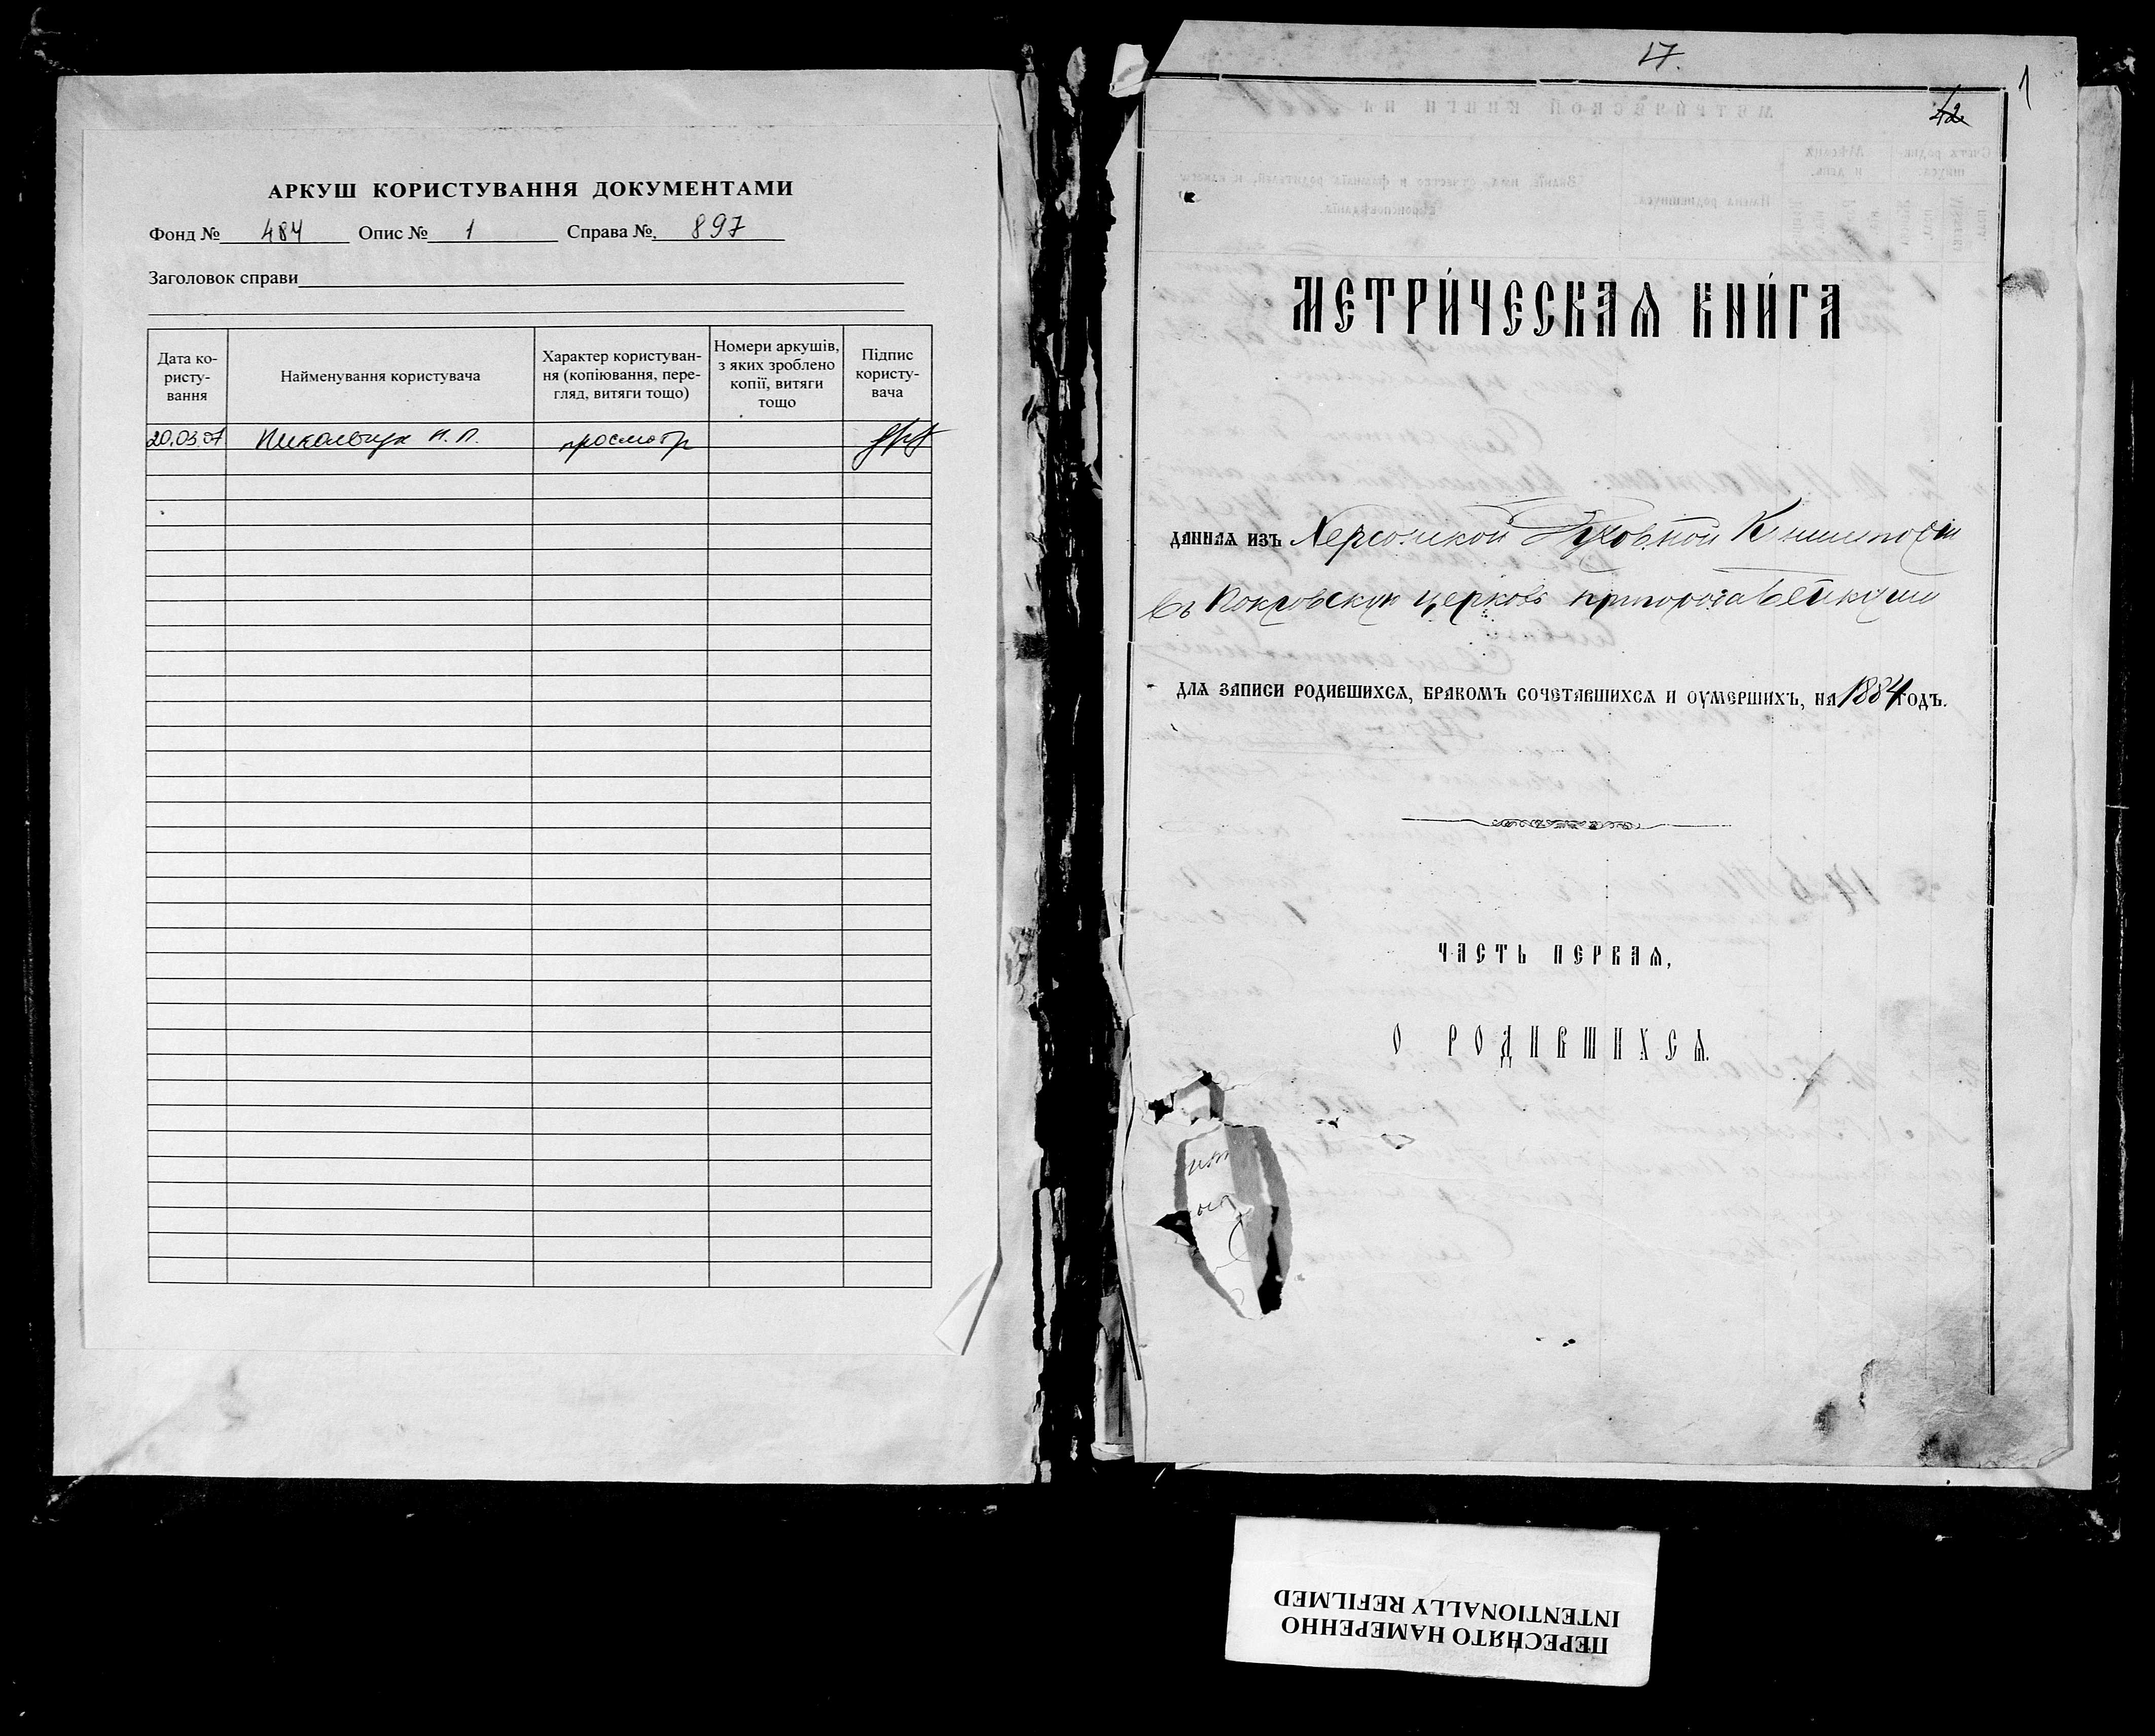 АРКУШ КОРИСТУВАННЯ ДОКУМЕНТАМИ
Фонд № 484 Опис № 1 Справа № 897
Заголовок справи
Дата ко-
ристу-
вання
Найменування користувача
Характер користуван-
ня (копіювання, пере-
гляд, витяги тощо)
Номери аркушів,
з яких зроблено
копії, витяги
тощо
Підпис
користу-
вача
20.03.07 просмотр
17.
42
1
МЕТРИ́ЧЕСКАѦ КНИ́ГА
ДАННАѦ ИЗЪ Херсонской Духовной Консисторіи
Въ Покровскую церковь пригорода
ДЛѦ ЗАПИСИ РОДИВШИХСѦ, БРАКОМЪ СОЧЕТАВШИХСѦ И ОУМЕРШИХЪ, НА 1884 ГОДЪ.
ЧАСТЬ ПЕРВАѦ,
О РОДИВШИХСѦ.
ПЕРЕСНЯТО НАМЕРЕННО
INTENTIONALLY REFILMED